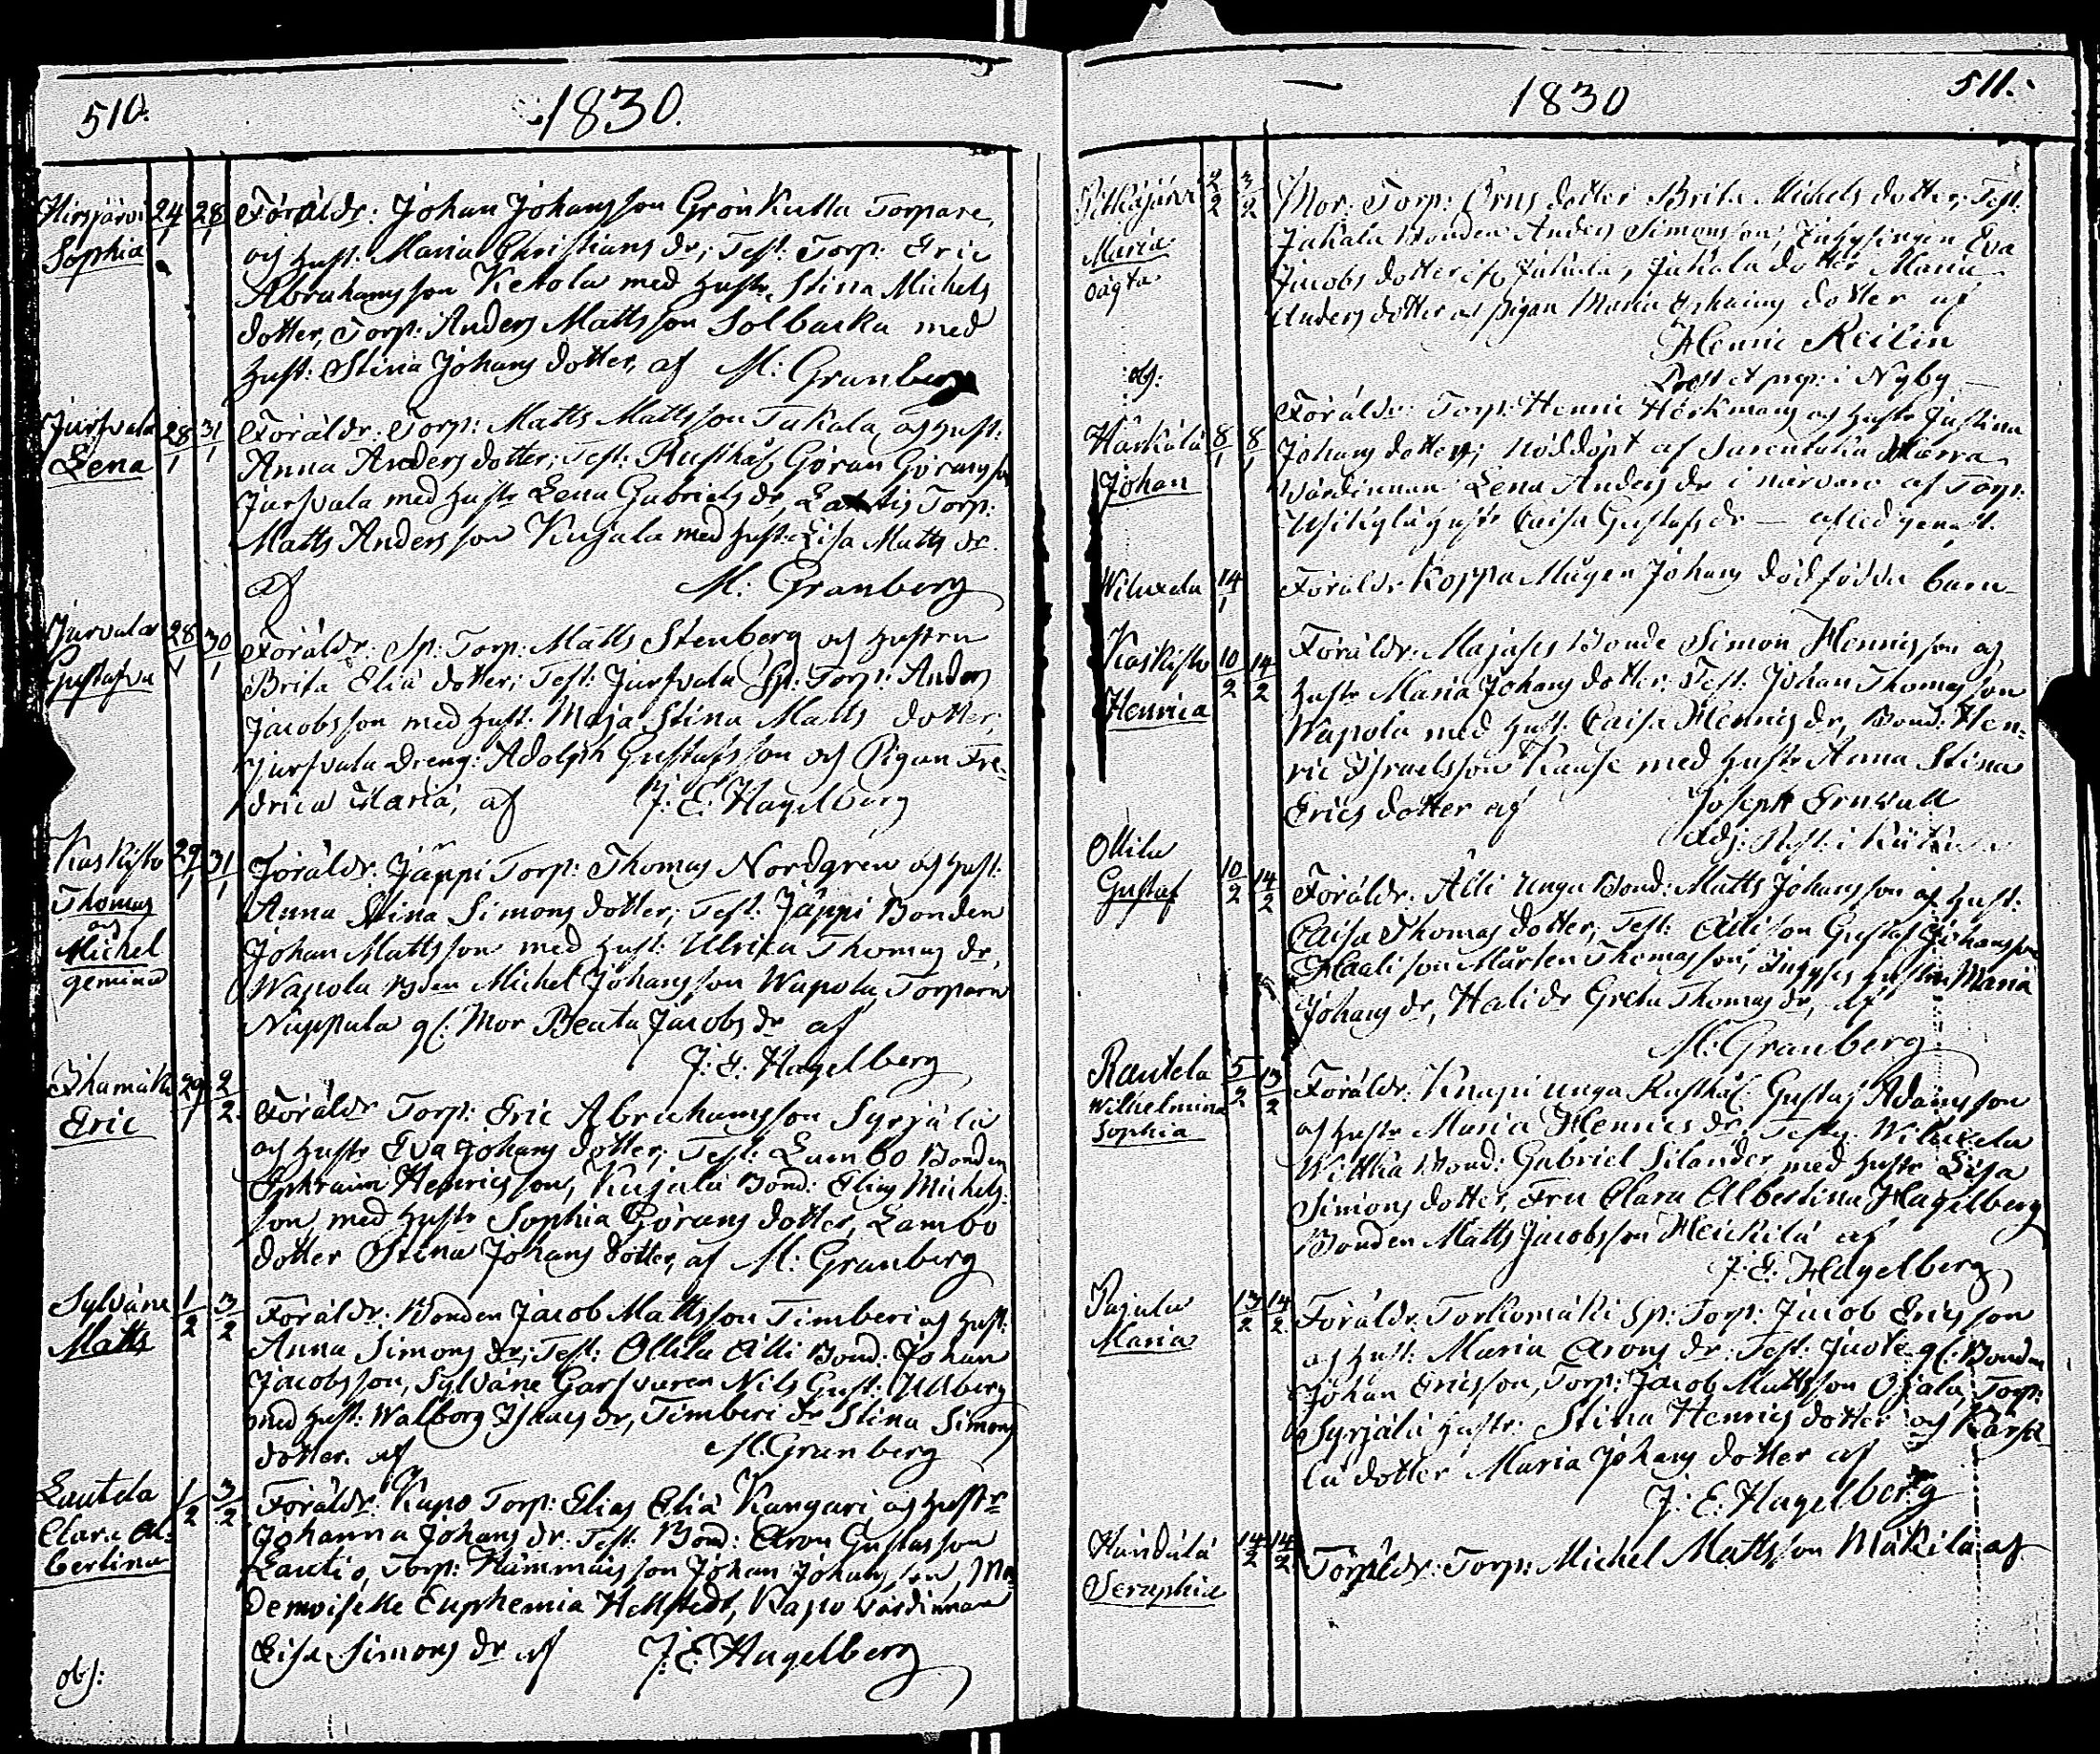 510.
1830.
Hirsjärvi 24/1 28/1 Föräldr: Johan Johansson Grönkulla Torpare,
Sophia och hust: Maria Christians dr; Test: Torp: Eric
Abrahamsson Ketola med hustr Stina Michels
dotter, Torp: Anders Mattsson Solbacka med
hust: Stina Johans dotter, af M: Granberg
Jursvala 28/1 31/1 Föräldr: Torp: Matts Mattsson Takala och hust:
Lena Anna Anders dotter; Test: Rusthåll Göran Göransson
Jursvala med hustr Lena Gabriels dr, Torp:
Matts Andersson Kujala med hust: Lisa Matts dr.
af M: Granberg
Jursvala 28/1 30/1 Föräldr: Sp: Torp: Matts Stenberg och hustru
Gustafva Brita Eliä dotter; Test: Jursvala Sp: Torp: Anders
Jacobsson med hust: Maja Stina Matts dotter,
Jursvala Dreng: Adolph Gustafsson och Pigan Fre-
drica Maria, af J: E: Hagelberg
Kaskisto 29/1 31/1 Föräldr: Jäppi Torp: Thomas Nordgren och hust:
Thomas Anna Stina Simons dotter; Test: Jäppi Bonden
och Johan Mattsson med hust: Ulrica Thomas dr,
Michel Wapola Bden Michel Johansson Wapola, Torparen
gemina Nuppula gl: Mor Beata Jacobs dr af
J: E: Hagelberg
Ihamäki 29/1 2/2 Föräldr Torp: Eric Abrahamsson Syrjälä
Eric och hustr Eva Johans dotter; Test: Lambo Bonden
Ephraim Henricsson, Kujala Bond: Elias Michels-
son med hustr Sophia Görans dotter, Lambo
dotter Stina Johans dotter, af M: Granberg
Sylväne 1/2 3/2 Föräldr: Bonden Jacob Mattsson Timberi och hust:
Matts Anna Simons dr; Test: Ollila Alli Bond: Johan
Jacobsson, Sylväne Garfvaren Nils Gust: Ullberg
med hust: Walborg Isaacs dr, Timberi dr Stina Simons
dotter. af M: Granberg
Lautela 1/2 3/2 Föräldr: Kapo Torp: Elias Eliä Kangari, och hustr
Clara Al- Johanna Johans dr. Test: Bond: Aron Gustafsson
bertina Lautio, Torp: Hämmäisson Johan Johansson, Ma-
demoiselle Euphemia Hellstedt, Kapo Värdinnan
Lisa Simons dr af J: E: Hagelberg
obs:
1830
511.
Pitkäjärvi 2/2 3/2 Mor: Torp: Örns dotter Brita Michels dotter; Test:
Maria Jakala Bonden Anders Simonsson, Inhysingen Eva
oägta Jacobs dotter Jakala, Jakala dotter Maria
Anders dotter och pigan Maria dotter af
Henric Reilin
i Nyby
obs:
Föräldr: Torp: Henric Hörkman och hustr Justina
Härkälä 8/1 8/1 Johans dotter; nöddöpt af Sarentaka
Johan Värdinnan Lena Anders dr i närvaro af Torp:
hustr Caisa Gustafs dr — afled genast.
Wiluxela 14/1 Föräldr: Koppa Mågen Johans dödfödda barn
Kaskisto 10/2 14/2 Föräldr: Majas Bonde Simon Henricsson och
Henrica hustr Maria Johans dotter; Test: Johan Thomasson
Wapola med hust: Caisa Henrics dr, Bond: Hen-
ric Israelsson Kause med hustr Anna Stina
Erics dotter af Joseph Ervall
Adj: Past: i
Ollila 10/2 14/2 Föräldr: Alli Unga Bond: Matts Johansson och hust:
Gustaf Caisa Thomas dotter; Test: Alli son Gustaf Johansson
Haali son Mårten Thomasson, Inhyses hustrun Maria
Johans dr, Hali dr Greta Thomas dr, af
M: Granberg
Rautela 5/2 13/2 Föräldr: Knapi unga Rusthål: Gustaf Adamsson
Wilhelmina och hustr Maria Henrics dr; Test: Wiluxela
Sophia Wittka Bond: Gabriel Silander med hustr Lisa
Simons dotter, Fru Clara Albertina Hagelberg
Bonden Matts Jacobsson Heickilä af
J: E: Hagelberg
Pajula 13/2 14/2 Föräldr. Torkomäki Sp: Torp: Jacob Ericsson
Maria och hust: Maria Arons dr: Test: Juote gl: Bonden
Johan Ericsson, Torp: Jacob Mattsson Ojala, Torp:
Syrjälä hustr: Stina Henrics dotter och Kärsä-
lä dotter Maria Johans dotter af
J: E: Hagelberg
Händälä 14/2 14/2 Föräldr: Torp: Michel Mattsson Mäkilä af
Seraphia